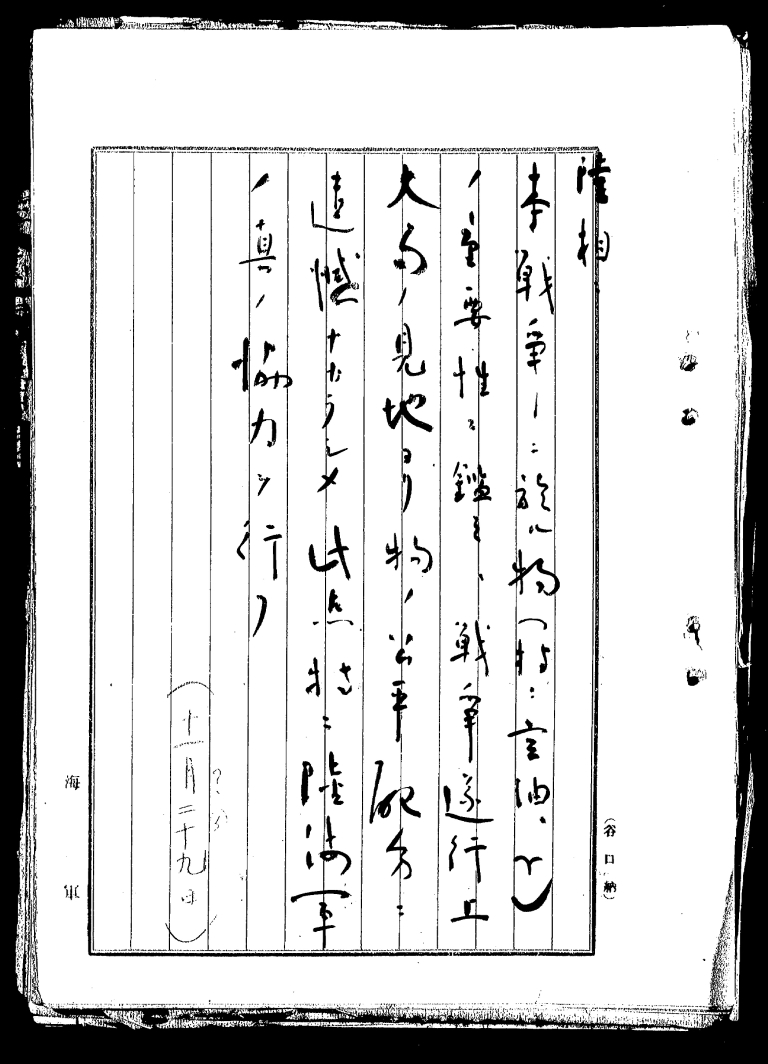 陸相
本戦争ニ於ル物(特ニ重油、
ノ重要性ニ鑑ミ、戦争遂行上
大局ノ見地ヨリ物ノ公平配分ニ
遺憾ナカラシメ此点特ニ陸海軍
ノ真ノ協力ヲ行フ
(十一月二十九日)
海軍
(谷口納)